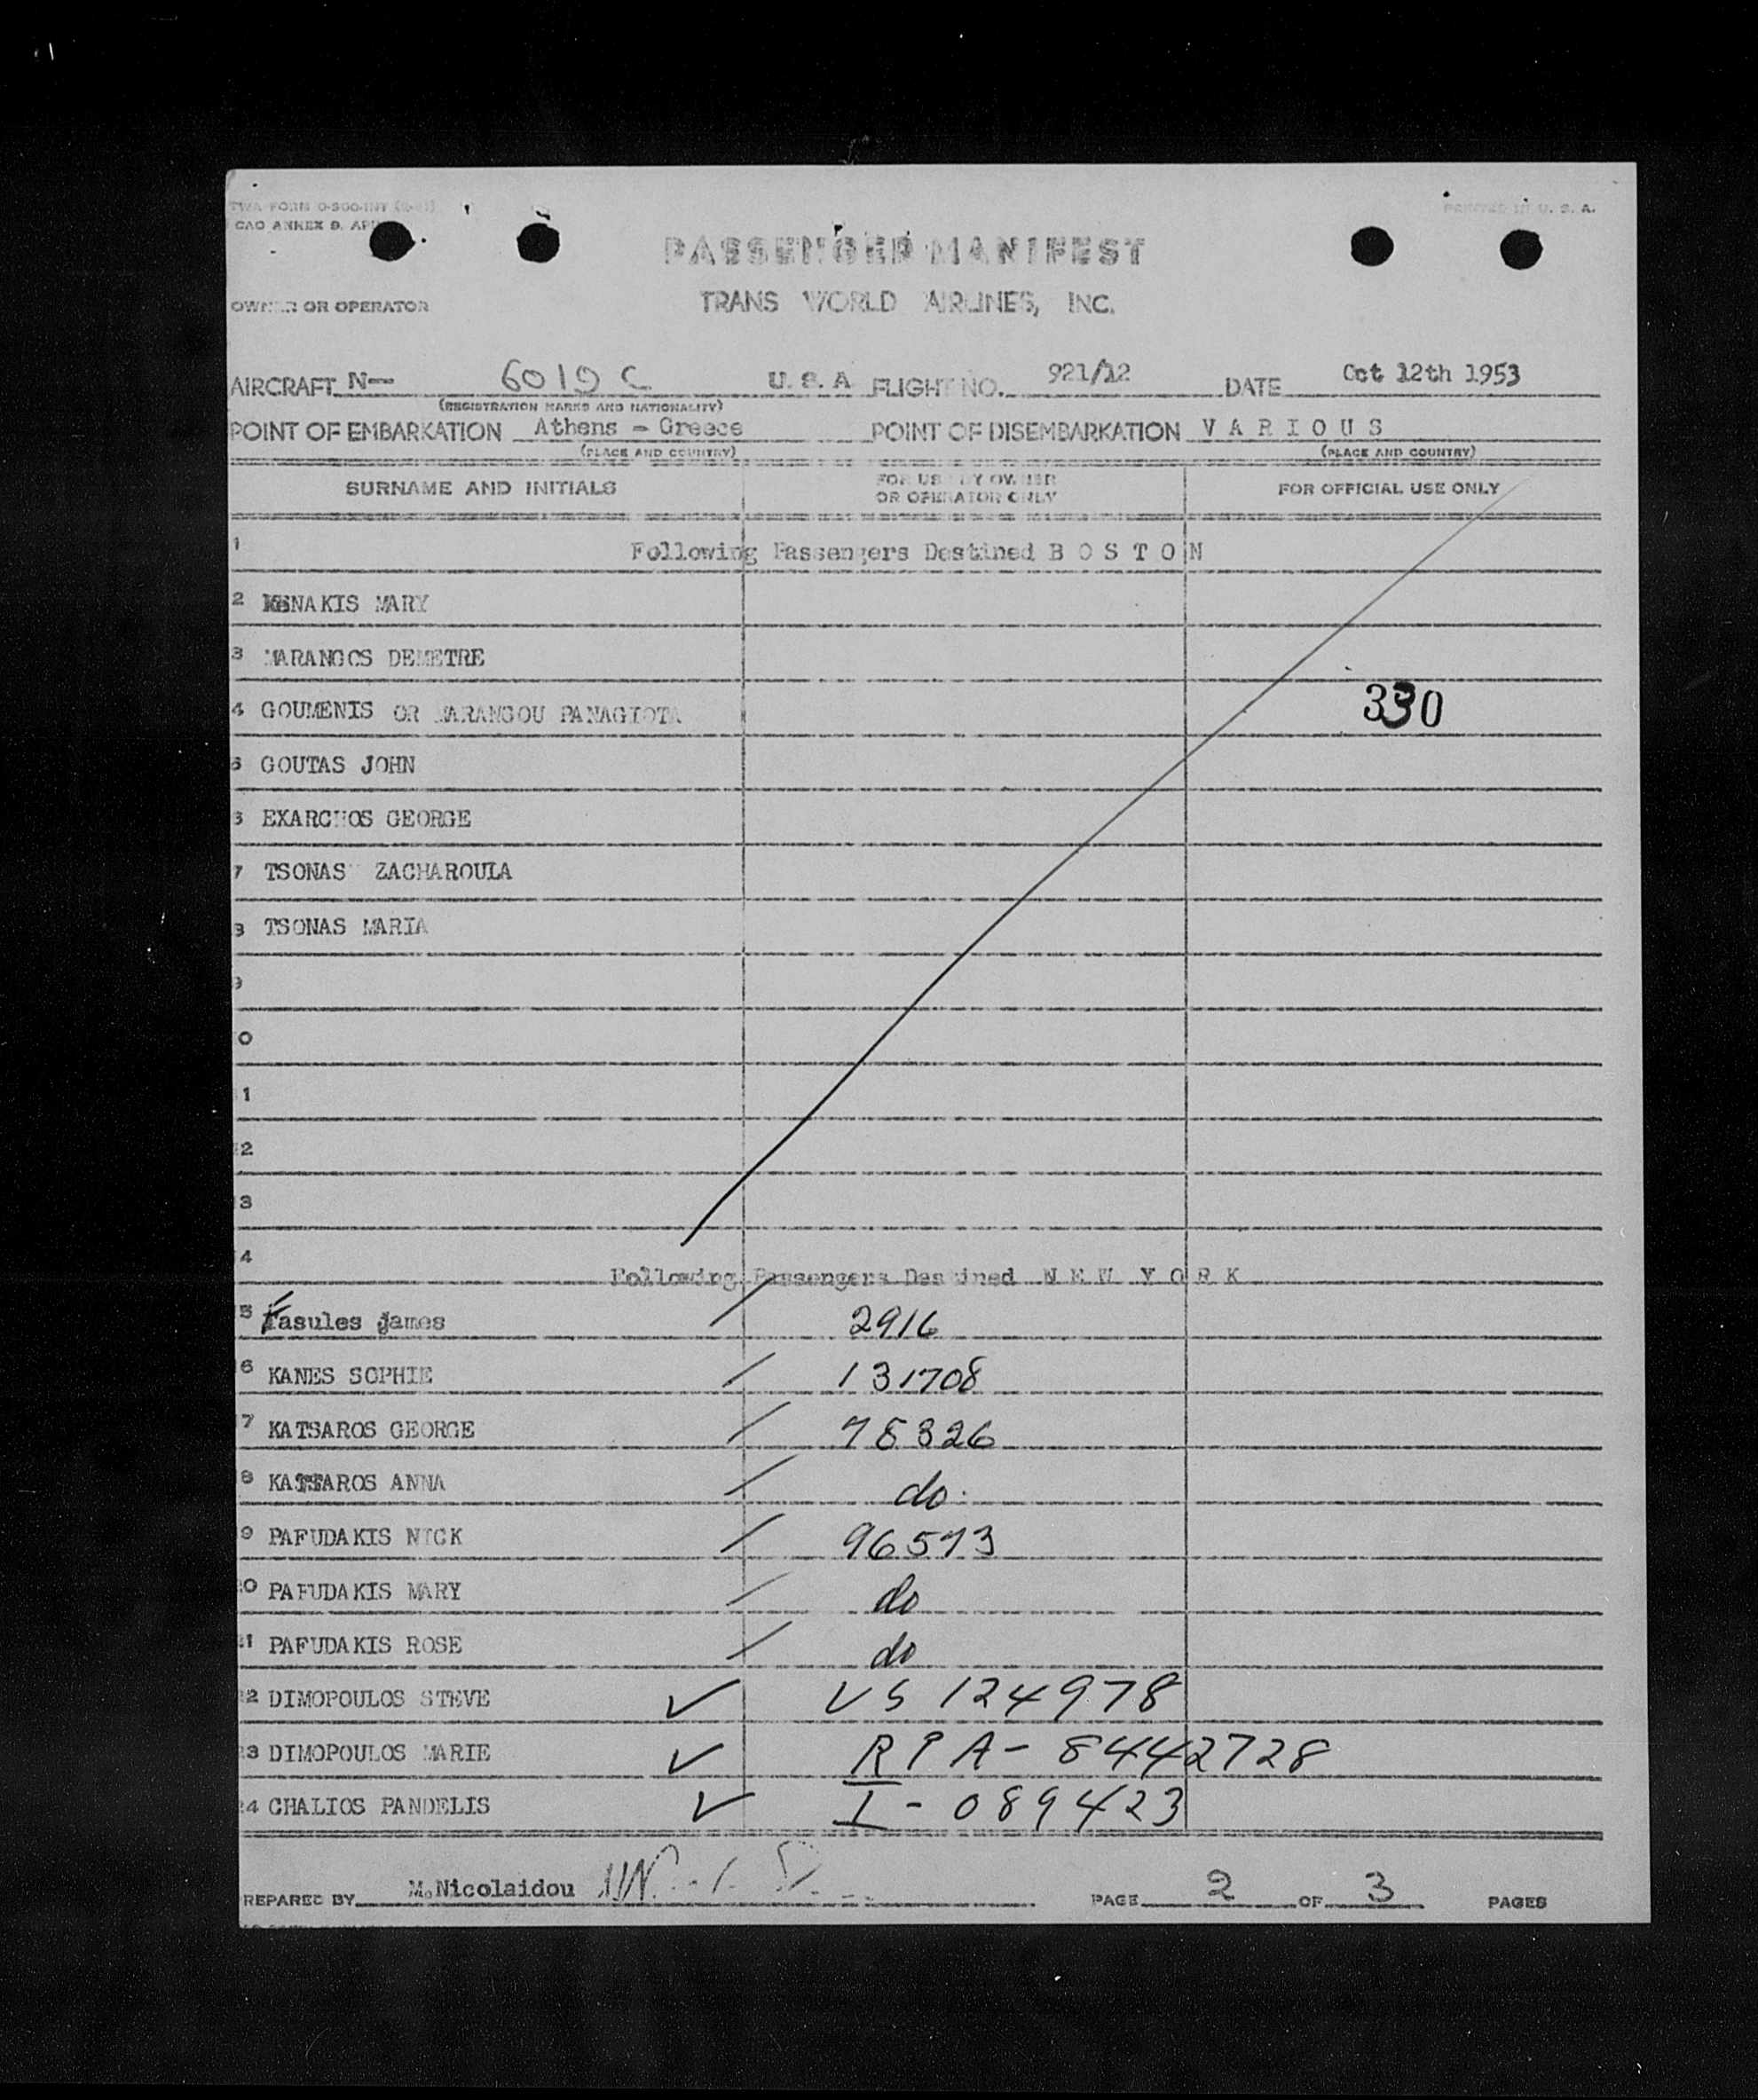 TWA FORM 0-900-INT
PRINTED IN U. S. A.
CAO ANNEX 9. AP
PASSENGER MANIFEST
OWNER OR OPERATOR TRANS WORLD AIRLINES, INC.
AIRCRAFT N— 6019 C U. S. A FLIGHT NO. 921/12 DATE Oct 12th 1953
(REGISTRATION MARKS AND NATIONALITY)
POINT OF EMBARKATION Athens - Greece POINT OF DISEMBARKATION V A R I O U S
(PLACE AND COUNTRY) (PLACE AND COUNTRY)
SURNAME AND INITIALS FOR USE BY OWNER OR OPERATOR ONLY FOR OFFICIAL USE ONLY
1 Following Passengers Destined B O S T O N
2 NAKIS MARY
3 MARANGOS DEMETRE
4 GOUMENIS OR MARANGOU PANAGIOTA 330
5 GOUTAS JOHN
6 EXARCHOS GEORGE
7 TSONAS ZACHAROULA
8 TSONAS MARIA
9
10
11
12
13
14 Following Passengers Destined N E W Y O R K
15 Fasules james 2916
16 KANES SOPHIE 131708
17 KATSAROS GEORGE 78326
18 KATSAROS ANNA do.
19 PAFUDAKIS NICK 96573
20 PAFUDAKIS MARY do
21 PAFUDAKIS ROSE do
22 DIMOPOULOS STEVE ✓ VS 124978
23 DIMOPOULOS MARIE ✓ RPA- 8442728
24 CHALIOS PANDELIS ✓ I - 089423
PREPARED BY M. Nicolaidou PAGE 2 OF 3 PAGES